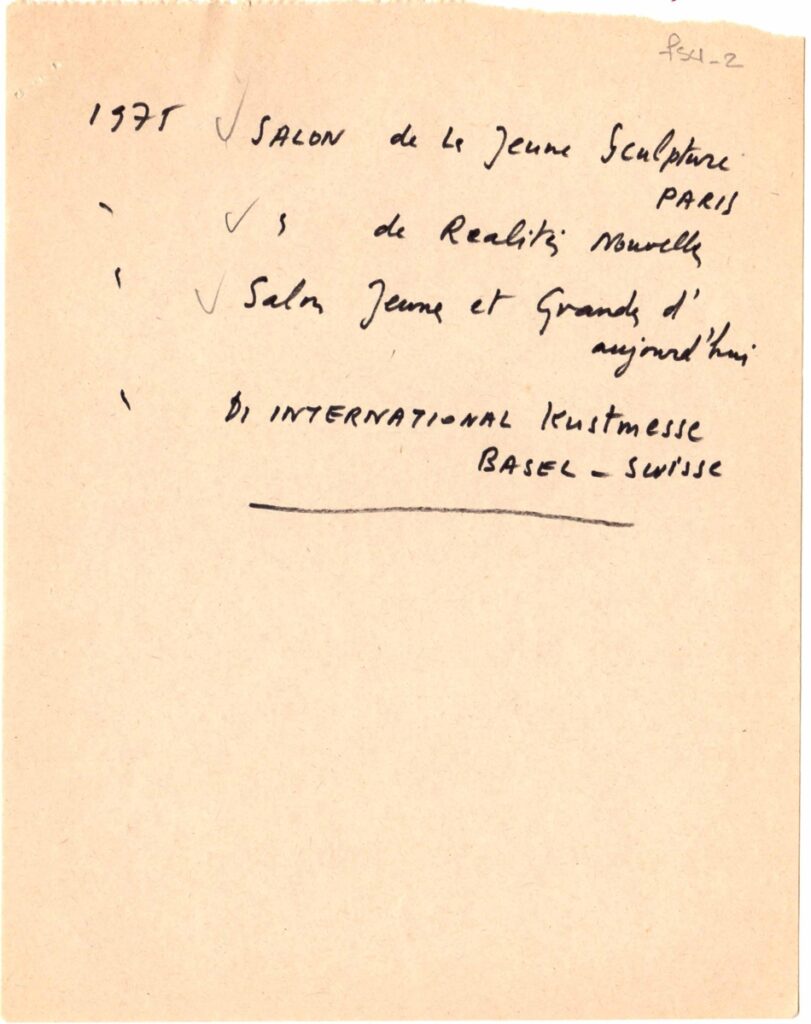 f54-2
1975 ✓ SALON de la Jeune Sculpture
PARIS
" ✓ " de Realités Nouvelles
" ✓ Salon Jeunes et Grands d'
aujourd'hui
" DI INTERNATIONAL Kustmesse
BASEL - SWISSE